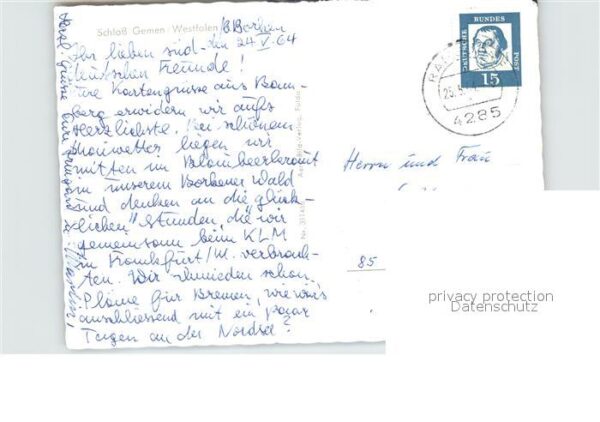 Schloß Gemen / Westfalen
b. Borken
den 24. V. 64
Ihr lieben süd-
deutschen Freunde!
Eure Kartengrüsse aus Bam-
berg erwidern wir aufs
Herzlichste. Bei schönem
wetter liegen wir
mitten im Blaubeerkraut
in unserem Borkener Wald
und denken an die glück-
lichen Stunden, die wir
gemeinsam beim KLM
in Frankfurt/M. verbrach-
ten. Wir schmieden schon
Pläne für Bremen, wie wär's
anschliessend mit ein paar
Tagen an der Nordsee?
Herzl. Grüsse Eure Irmgard
DEUTSCHE
BUNDES
POST
15
4285
Herrn und Frau
85
privacy protection
Datenschutz